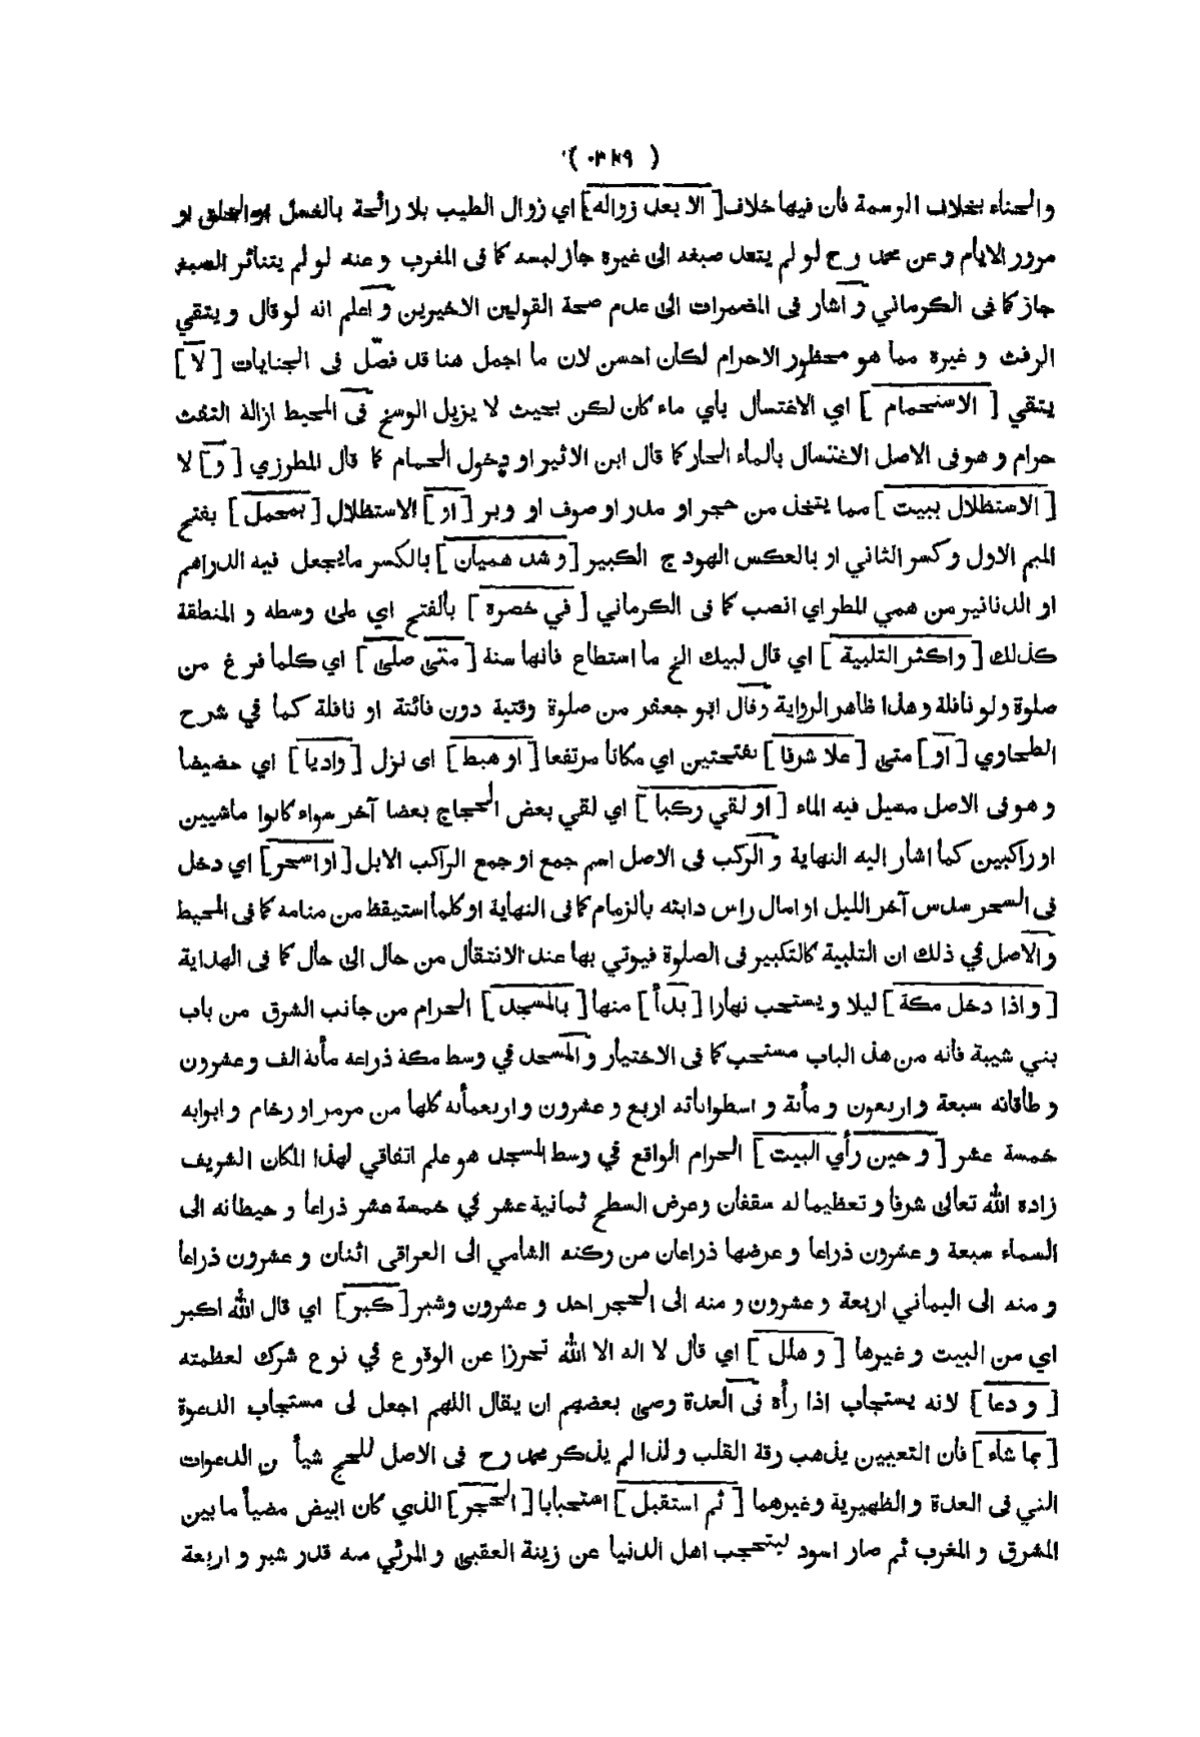 ( ٣٤٩ )
والحناء بخلاف الوسمة فأن فيها خلاف [ الا بعد زواله ] اي زوال الطيب بلا رائحة بالغسل او الخلق او
مرور الايام و عن محمد رح لو لم يتعد صبغه الى غيره جاز لبسه كما فى المغرب و عنه لو لم يتناثر الصبغ
جاز كما فى الكرماني و اشار فى المضمرات الى عدم صحة القولين الاخيرين و اعلم انه لو قال و يتقي
الرفث و غيره مما هو محظور الاحرام لكان احسن لان ما اجمل هنا قد فصّل فى الجنايات [ لا ]
يتقي [ الاستحمام ] اي الاغتسال بأي ماء كان لكن بحيث لا يزيل الوسخ فى المحيط ازالة التفث
حرام و هو فى الاصل الاغتسال بالماء الحار كما قال ابن الاثير او دخول الحمام كما قال المطرزي [ و ] لا
[ الاستظلال ببيت ] مما يتخذ من حجر او مدر او صوف او وبر [ او ] الاستظلال [ بمحمل ] بفتح
الميم الاول و كسر الثاني او بالعكس الهودج الكبير [ و شد هميان ] بالكسر ما يجعل فيه الدراهم
او الدنانير من همي المطر اي انصب كما فى الكرماني [ في خصره ] بالفتح اي على وسطه و المنطقة
كذلك [ و اكثر التلبية ] اي قال لبيك الخ ما استطاع فانها سنة [ متى صلى ] اي كلما فرغ من
صلوة ولو نافلة و هذا ظاهر الرواية وقال ابو جعفر من صلوة وقتية دون فائتة او نافلة كما في شرح
الطحاوي [ او ] متى [ علا شرفا ] بفتحتين اي مكانا مرتفعا [ او هبط ] اى نزل [ واديا ] اي حضيضا
و هو فى الاصل مسيل فيه الماء [ او لقي ركبا ] اي لقي بعض الحجاج بعضا آخر سواء كانوا ماشيين
او راكبين كما اشار اليه النهاية و الركب فى الاصل اسم جمع او جمع الراكب الابل [ او اسحر ] اي دخل
فى السحر سدس آخر الليل او امال راس دابته بالزمام كما فى النهاية او كلما استيقظ من منامه كما فى المحيط
و الاصل في ذلك ان التلبية كالتكبير فى الصلوة فيوتي بها عند الانتقال من حال الى حال كما فى الهداية
[ و اذا دخل مكة ] ليلا و يستحب نهارا [ بدأ ] منها [ بالمسجد ] الحرام من جانب الشرق من باب
بني شيبة فانه من هذ الباب مستحب كما فى الاختيار و المسجد في وسط مكة ذراعه مأئة الف و عشرون
و طاقاته سبعة و اربعون و مأئة و اسطواناته اربع و عشرون و اربعمأئه كلها من مرمر او رخام و ابوابه
خمسة عشر [ و حين رأي البيت ] الحرام الواقع في وسط المسجد هو علم اتفاقي لهذا المكان الشريف
زاده الله تعالى شرفا و تعظيما له سقفان وعرض السطح ثمانية عشر في خمسة عشر ذراعا و حيطانه الى
السماء سبعة و عشرون ذراعا و عرضها ذراعان من ركنه الشامي الى العراقى اثنان و عشرون ذراعا
و منه الى اليماني اربعة و عشرون و منه الى الحجر احد و عشرون وشبر [ كبر ] اي قال الله اكبر
اي من البيت و غيرها [ و هلل ] اي قال لا اله الا الله تحرزا عن الوقوع في نوع شرك لعظمته
[ و دعا ] لانه يستجاب اذا رأه فى العدة وصى بعضهم ان يقال اللهم اجعل لى مستجاب الدعوة
[ بما شاء ] فأن التعيين يذهب رقة القلب و لذا لم يذكر محمد رح فى الاصل للحج شيأ من الدعوات
التي فى العدة و الظهيرية وغيرهما [ ثم استقبل ] استحبابا [ الحجر ] الذي كان ابيض مضيأ ما بين
المشرق و المغرب ثم صار اسود ليتحجب اهل الدنيا عن زينة العقبى و المرئي منه قدر شبر و اربعة